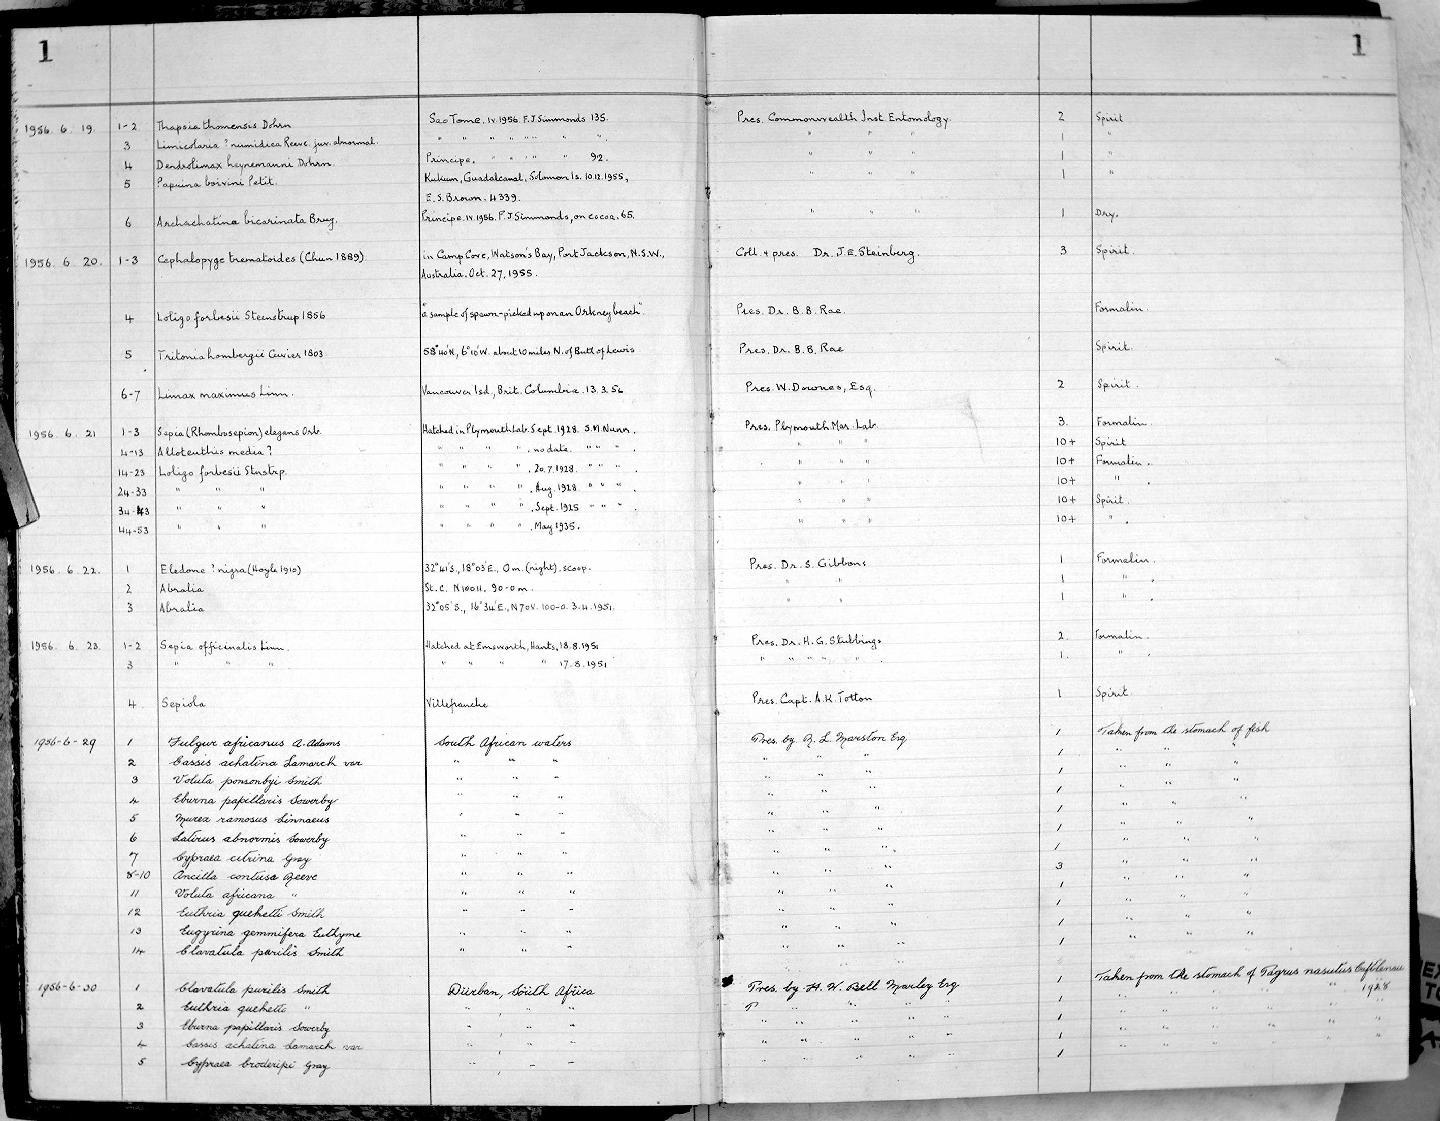 1 1
1956. 6. 19. 1-2 Thapsia thomensis Dohrn Sao Tome. IV. 1956. F. J Simmonds 135. Pres. Commonwealth Inst Entomology. 2 Spirit
3 Limicolaria ? numidica Reeve. juv. abnormal. " " " " " " " " " " 1 "
4 Dendrolimax heynemanni Dohrn. Principe. " " " " " 92. " " " 1 "
5 Papuina boivini Petit. Kukum, Guadalcanal, Solomon Is. 10.12.1955, " " " 1 "
E. S. Brown. 4339.
6 Archachatina bicarinata Brug. Principe. IV. 1956. F. J Simmonds, on cocoa. 65. " " " 1 Dry.
1956. 6. 20. 1-3 Cephalopyge trematoides (Chun 1889) in Camp Cove, Watson's Bay, Port Jackson, N.S.W., Coll. & pres. Dr. J. E. Steinberg. 3 Spirit.
Australia. Oct. 27, 1955.
4 Loligo forbesii Steenstrup 1856 "a sample of spawn-picked up on an Orkney beach" Pres. Dr. B. B. Rae. Formalin.
5 Tritonia hombergii Cuvier 1803 58°40'N, 6°10'W. about 10 miles N. of Butt of Lewis Pres. Dr. B. B. Rae Spirit.
6-7 Limax maximus Linn. Vancouver Isd., Brit. Columbia. 13. 3. 56 Pres. W. Downes, Esq. 2 Spirit.
1956. 6. 21 1-3 Sepia (Rhombosepion) elegans Orb. Hatched in Plymouth Lab. Sept. 1928. S. M Nunn. Pres. Plymouth Mar. Lab. 3. Formalin.
4-13 Alloteuthis media ? " " " " . no date. " " " . " " " 10+ Spirit
14-23 Loligo forbesii Stnstrp. " " " " . 20. 7. 1928. " " " . " " " 10+ Formalin.
24-33 " " " " " " " . Aug. 1928. " " " . " " " 10+ " .
34-43 " " " " " " " . Sept. 1925 " " " . " " " 10+ Spirit.
44-53 " " " " " " " . May 1935. " " " 10+ " .
1956. 6. 22. 1 Eledone ? nigra (Hoyle 1910) 32°41'S., 18°03'E., 0 m. (night). scoop. Pres. Dr. S. Gibbons 1 Formalin.
2 Abralia St. C. N100H. 90-0 m. " " 1 " .
3 Abralia 32°05'S., 16°34'E., N70V. 100-0. 3. 4. 1951. " " 1 " .
1956. 6. 23. 1-2 Sepia officinalis Linn. Hatched at Emsworth, Hants, 18. 8. 1951 Pres. Dr. H. G. Stubbings 2. Formalin.
3 " " " " " " " 17. 8. 1951 " " " " " . 1. " .
4 Sepiola Villefranche Pres. Capt. A. K. Totton 1 Spirit.
1956-6-29 1 Fulgur africanus A. Adams South African waters Pres. by R. L. Marston Esq 1 Taken from the stomach of fish
2 Cassis achatina Lamarck var " " " " " " 1 " " "
3 Voluta ponsonbyi Smith " " " " " " 1 " " "
4 Eburna papillaris Sowerby " " " " " " 1 " " "
5 Murex ramosus Linnaeus " " " " " " 1 " " "
6 Latirus abnormis Sowerby " " " " " " 1 " " "
7 Cypraea citrina Gray " " " " " " 1 " " "
8-10 Ancilla contusa Reeve " " " " " " 3 " " "
11 Voluta africana " " " " " " " 1 " " "
12 Euthria queketti Smith " " " " " " 1 " " "
13 Eugyrina gemmifera Euthyme " " " " " " 1 " " "
14 Clavatula parilis Smith " " " " " " 1 " " "
1956-6-30 1 Clavatula parilis Smith Durban, South Africa Pres. by H. W. Bell Marley Esq. 1 Taken from the stomach of Pagrus nasutus Castlenau
1928
2 Euthria queketti " " " " " " " 1 " " " " "
3 Eburna papillaris Sowerby " " " " " " " 1 " " " " "
4 Cassis achatina Lamarck var " " " " " " " 1 " " " " "
5 Cypraea broderipi Gray " " " " " " " 1